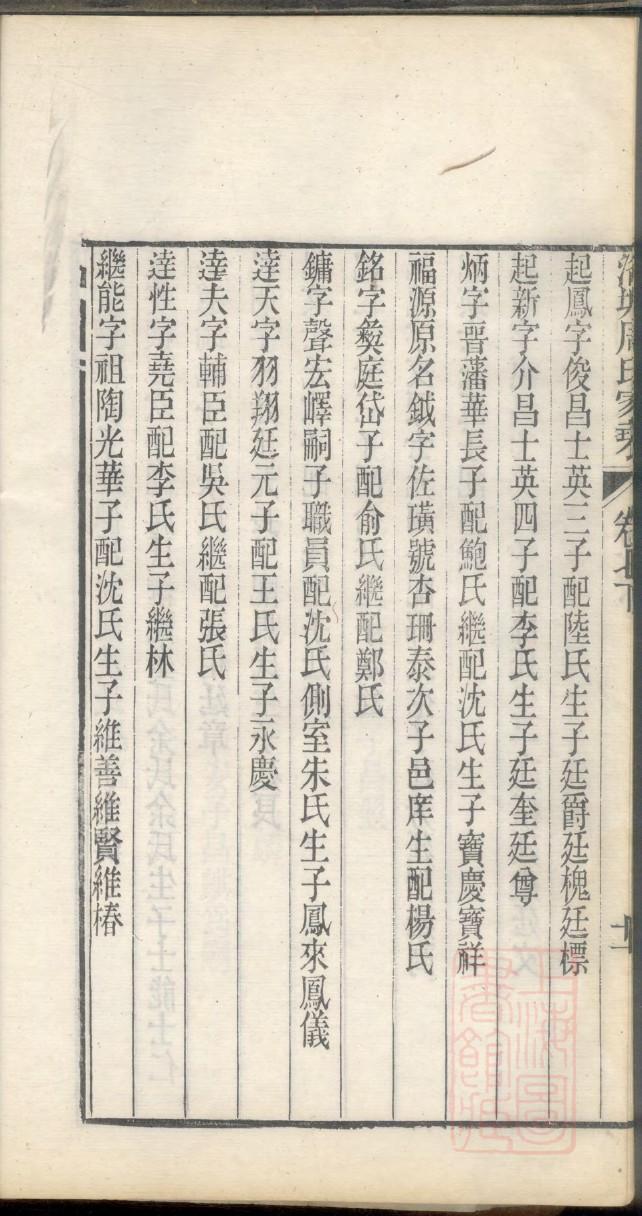 周氏家
卷七下
十一
起鳳字俊昌士英三子配陸氏生子廷爵廷槐廷標
起新字介昌士英四子配李氏生子廷奎廷尊
炳字晋藩華長子配鮑氏繼配沈氏生子寶慶寶祥
福源原名鉞字佐璜號杏珊泰次子邑庠生配楊氏
銘字彜庭岱子配俞氏繼配鄭氏
鏞字聲宏嶧嗣子職員配沈氏側室朱氏生子鳳來鳳儀
達天字羽翔廷元子配王氏生子永慶
達夫字輔臣配吳氏繼配張氏
達性字堯臣配李氏生子繼林
繼能字祖陶光華子配沈氏生子維善維賢維椿
上海圖
書館藏